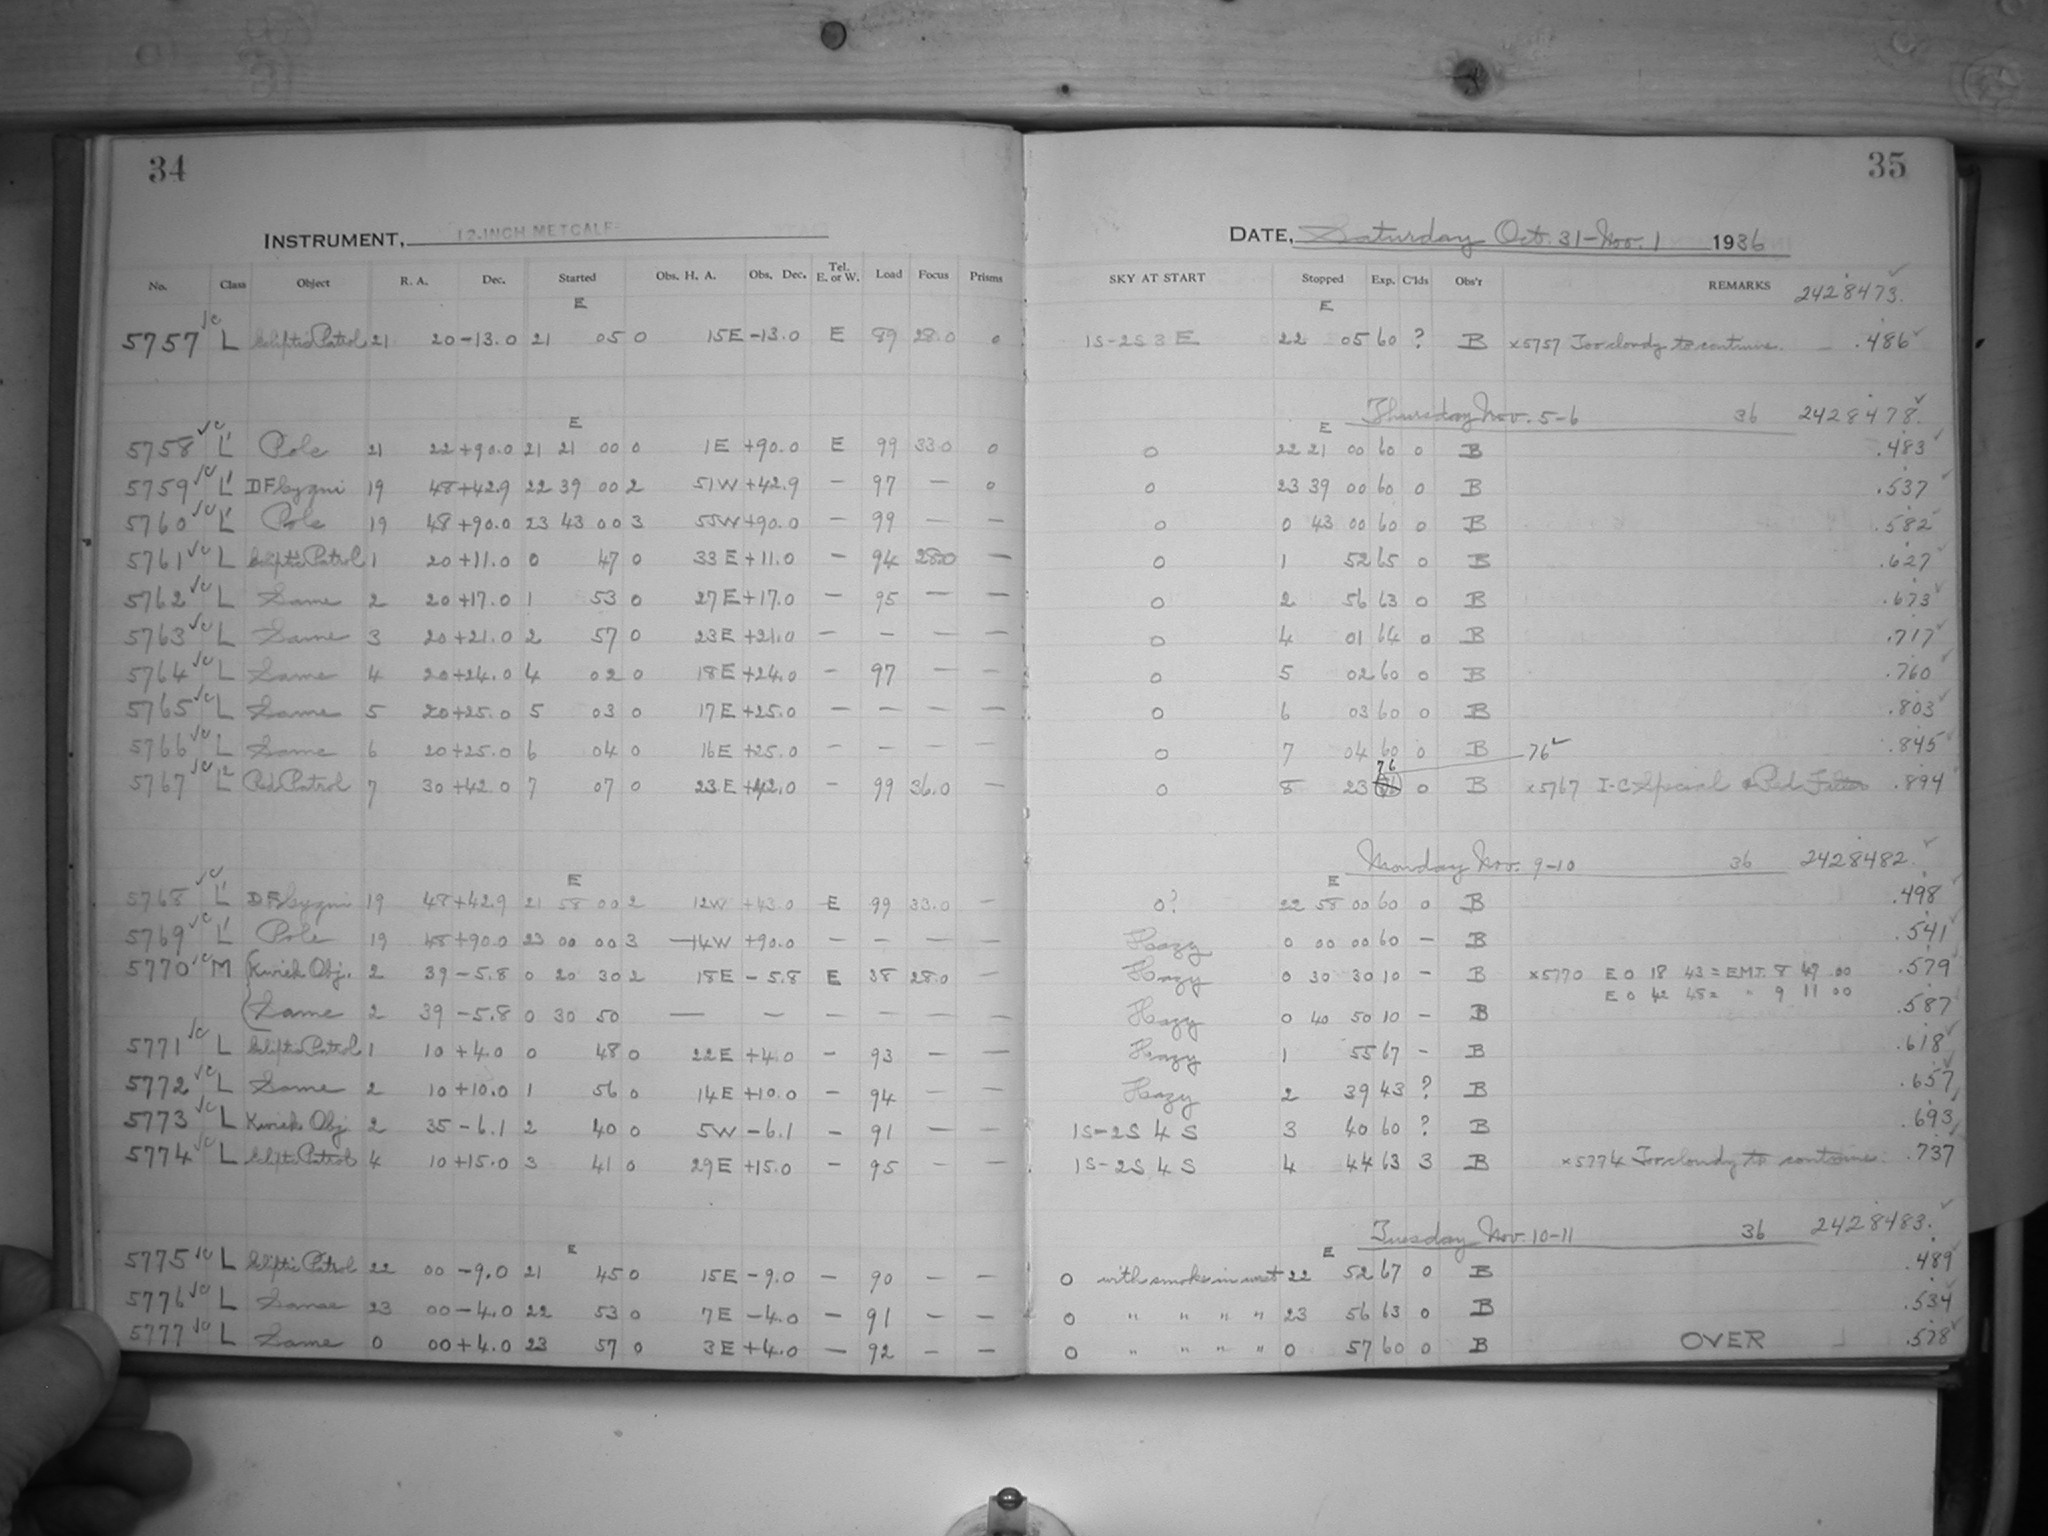 34
INSTRUMENT, 12-INCH METCALF
No. Class Object R. A. Dec. Started Obs. H. A. Obs. Dec. Tel. E. or W. Load Focus Prisms
E
5757 L Ecliptic Patrol 21 20 -13.0 21 05 0 15E -13.0 E 89 28.0 0
E
5758 L' Pole 21 22 +90.0 21 21 00 0 1E +90.0 E 99 33.0 0
5759 L' DF Cygni 19 48 +42.9 22 39 00 2 51W +42.9 — 97 — 0
5760 L' Pole 19 48 +90.0 23 43 00 3 55W +90.0 — 99 — —
5761 L Ecliptic Patrol 1 20 +11.0 0 47 0 33E +11.0 — 94 28.0 —
5762 L Same 2 20 +17.0 1 53 0 27E +17.0 — 95 — —
5763 L Same 3 20 +21.0 2 57 0 23E +21.0 — — — —
5764 L Same 4 20 +24.0 4 02 0 18E +24.0 — 97 — —
5765 L Same 5 20 +25.0 5 03 0 17E +25.0 — — — —
5766 L Same 6 20 +25.0 6 04 0 16E +25.0 — — — —
5767 L2 Red Patrol 7 30 +42.0 7 07 0 23E +42.0 — 99 36.0 —
E
5768 L' DF Cygni 19 48 +42.9 21 58 00 2 12W +43.0 E 99 33.0 —
5769 L' Pole 19 48 +90.0 23 00 00 3 —14W +90.0 — — — —
5770 M Kwiek Obj. 2 39 -5.8 0 20 30 2 18E -5.8 E 38 28.0 —
Same 2 39 -5.8 0 30 50 — — — — — —
5771 L Ecliptic Patrol 1 10 +4.0 0 48 0 22E +4.0 — 93 — —
5772 L Same 2 10 +10.0 1 56 0 14E +10.0 — 94 — —
5773 L Kwiek Obj. 2 35 -6.1 2 40 0 5W -6.1 — 91 — —
5774 L Ecliptic Patrol 4 10 +15.0 3 41 0 29E +15.0 — 95 — —
E
5775 L Ecliptic Patrol 22 00 -9.0 21 45 0 15E -9.0 — 90 — —
5776 L Same 23 00 -4.0 22 53 0 7E -4.0 — 91 — —
5777 L Same 0 00 +4.0 23 57 0 3E +4.0 — 92 — —
35
DATE, Saturday Oct. 31-Nov. 1 1936
SKY AT START Stopped Exp. C'lds Obs'r REMARKS 2428473.
E
1S-2S 3 E 22 05 60 ? B x5757 Too cloudy to continue. .486
Thursday Nov. 5-6 36 2428478.
E
0 22 21 00 60 0 B .483
0 23 39 00 60 0 B .537
0 0 43 00 60 0 B .582
0 1 52 65 0 B .627
0 2 56 63 0 B .673
0 4 01 64 0 B .717
0 5 02 60 0 B .760
0 6 03 60 0 B .803
0 7 04 60 0 B 76 .845
76
0 8 23 0 B x5767 I-C Special & Red Filter .894
Monday Nov. 9-10 36 2428482.
E
0? 22 58 00 60 0 B .498
Hazy 0 00 00 60 — B .541
Hazy 0 30 30 10 — B x5770 E 0 18 43 = EMT. 8 47 00 .579
E 0 42 48 = " 9 11 00
Hazy 0 40 50 10 — B .587
Hazy 1 55 67 — B .618
Hazy 2 39 43 ? B .657
1S-2S 4 S 3 40 60 ? B .693
1S-2S 4 S 4 44 63 3 B x5774 Too cloudy to continue. .737
Tuesday Nov. 10-11 36 2428483.
E
0 with smoke in west 22 52 67 0 B .489
0 " " " " 23 56 63 0 B .534
0 " " " " 0 57 60 0 B OVER .578